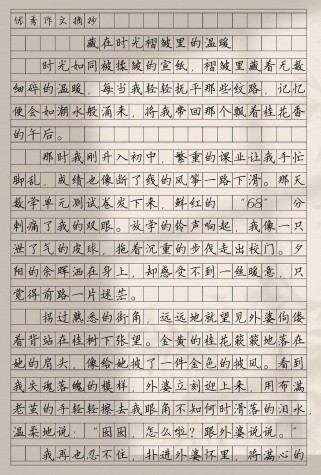 优秀作文摘抄
藏在时光褶皱里的温暖
时光如同被揉皱的宣纸，褶皱里藏着无数
细碎的温暖，每当我轻轻抚平那些纹路，记忆
便会如潮水般涌来，将我带回那个飘着桂花香
的午后。
那时我刚升入初中，繁重的课业让我手忙
脚乱，成绩也像断了线的风筝一路下滑。那天
数学单元测试卷发下来，鲜红的“68”分
刺痛了我的双眼。放学的铃声响起，我像一只
泄了气的皮球，拖着沉重的步伐走出校门。夕
阳的余晖洒在身上，却感受不到一丝暖意，只
觉得前路一片迷茫。
拐过熟悉的街角，远远地就望见外婆佝偻
着背站在桂树下张望。金黄的桂花簌簌地落在
她的肩头，像给她披了一件金色的披风。看到
我失魂落魄的模样，外婆立刻迎上来，用布满
老茧的手轻轻擦去我眼角不知何时滑落的泪水，
温柔地说：“囡囡，怎么啦？跟外婆说说。”
我再也忍不住，扑进外婆怀里，将满心的